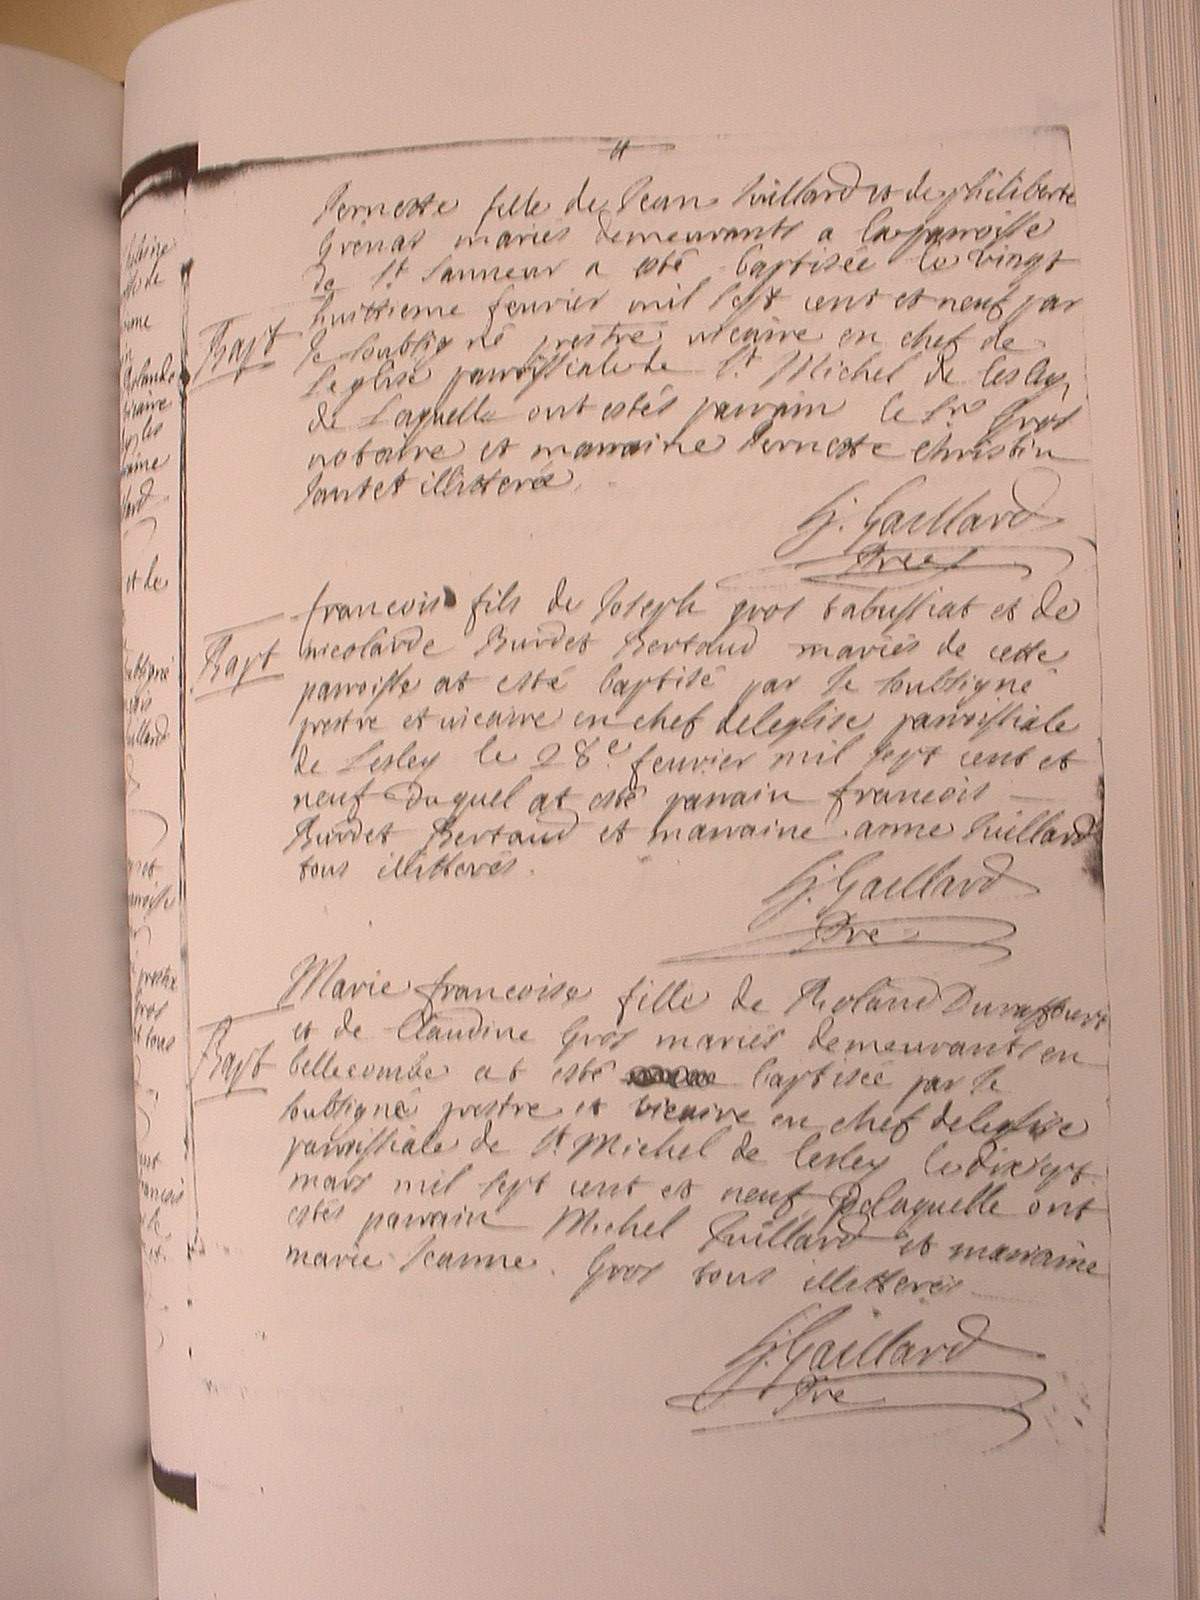 Pernette fille de Jean Vuillard et de philiberte
Grenat mariés demeurants a la parroisse
de St Sauveur a esté baptisée le vingt
huittieme feurier mil sept cent et neuf par
Bapt
le soubsigné prestre vicaire en chef de
leglise parroissiale de St Michel de Lesley
de Laquelle ont estés parrain le Sr Gros
notaire et marraine Pernette Christin
illitteré.
G. Gaillard
Pre
francois fils de Joseph gros tabussiat et de
Bapt
nicolarde Burdet Bertaud mariés de cette
parroisse at esté baptisé par le soubsigné
prestre et vicaire en chef deleglise parroissiale
de Lesley le 28e feurier mil sept cent et
neuf Duquel at esté parrain francois
Burdet Bertaud et marraine anne Vuillard
tous illitterés.
G. Gaillard
Pre
Marie francoise fille de Roland
et de Claudine Gros mariés demeurants en
Bapt
bellecombe at esté baptisée par le
soubsigné prestre et vicaire en chef deleglise
parroissiale de St Michel de Lesley le dixsept
mars mil sept cent et neuf Delaquelle ont
estés parrain Michel Vuillard et marraine
marie Jeanne Gros tous illitterés
G. Gaillard
Pre